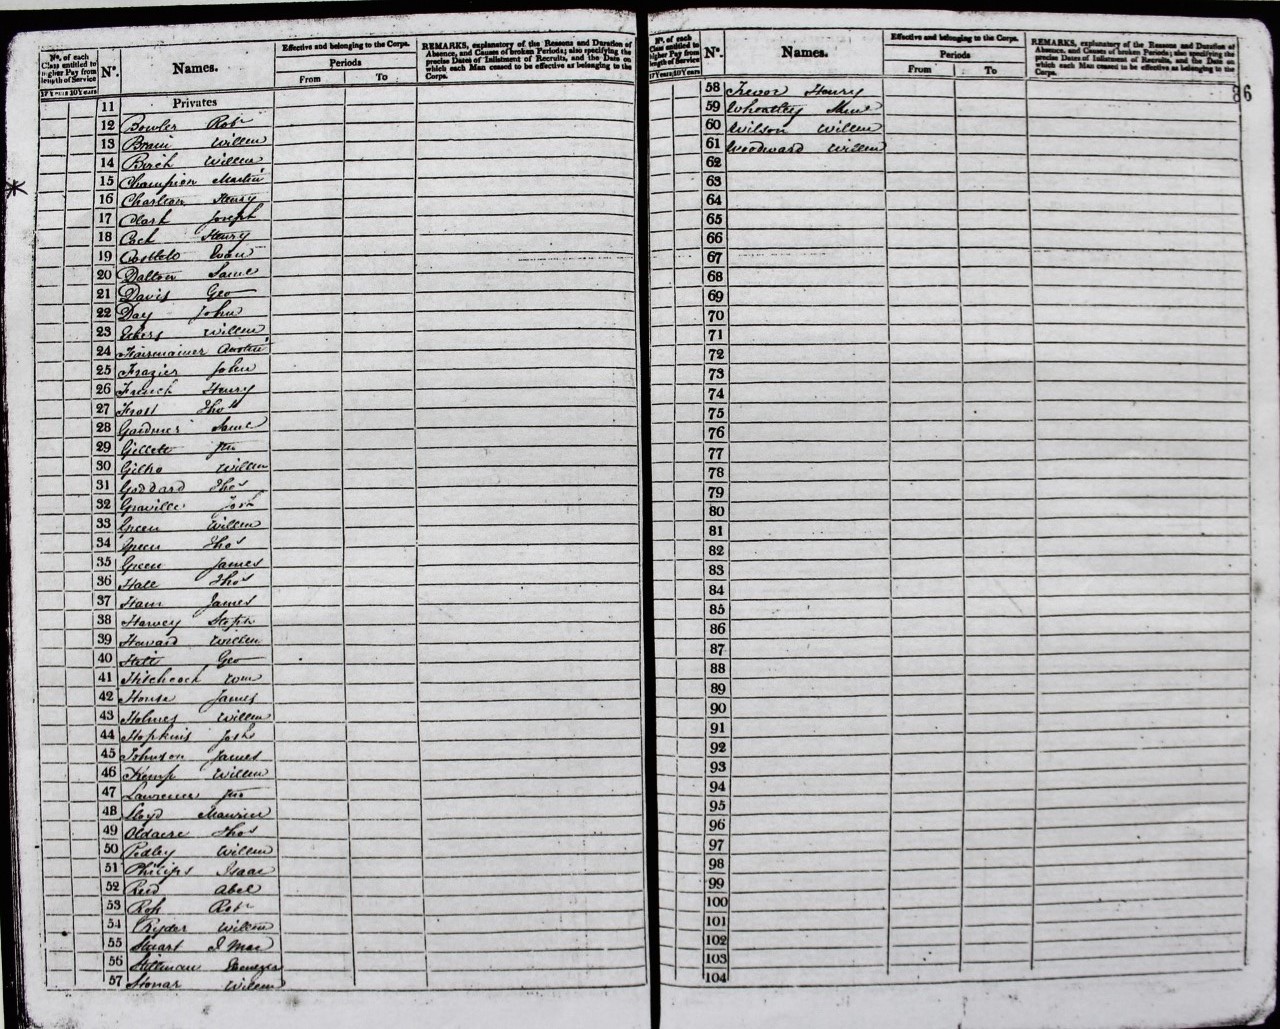 No. of each Class entitled to higher Pay from length of Service
17 Years 10 Years
No.
Names.
Effective and belonging to the Corps.
Periods
From To
REMARKS, explanatory of the Reasons and Duration of
Absence, and Causes of broken Periods; also specifying the
precise Dates of Inlistment of Recruits, and the Date on
which each Man ceased to be effective as belonging to the
Corps.
11 Privates
12 Bowler Robt
13 Brain Willm
14 Birch Willm
15 Champion Martin
16 Charlton Henry
17 Clark Joseph
18 Cock Henry
19 Costtelo Evan
20 Dalton Saml
21 Davis Geo
22 Day John
23 Willm
24 Austin
25 Frazier John
26 French Henry
27 Frost Thos
28 Gardner Saml
29 Gillett Jno
30 Gilks Willm
31 Goddard Thos
32 Graville Josh
33 Green Willm
34 Green Thos
35 Green James
36 Hall Thos
37 Ham James
38 Harvey Steph
39 Howard Willm
40 Geo
41 Hitchcock Wm
42 House James
43 Holmes Willm
44 Hopkins Josh
45 Johnson James
46 Kemp Willm
47 Lawrence Jno
48 Lloyd Maurice
49 Oldacre Thos
50 Pedley Willm
51 Philips Isaac
52 Reid Abel
53 Ross Robt
54 Ryder Willm
55 Stuart
56 Stillman Ebenezer
57 Stonar Willm
No. of each Class entitled to higher Pay from length of Service
17 Years 10 Years
No.
Names.
Effective and belonging to the Corps.
Periods
From To
REMARKS, explanatory of the Reasons and Duration of
Absence, and Causes of broken Periods; also specifying the
precise Dates of Inlistment of Recruits, and the Date on
which each Man ceased to be effective as belonging to the
Corps.
86
58 Trevor Henry
59 Wheatley
60 Wilson Willm
61 Woodward Willm
62
63
64
65
66
67
68
69
70
71
72
73
74
75
76
77
78
79
80
81
82
83
84
85
86
87
88
89
90
91
92
93
94
95
96
97
98
99
100
101
102
103
104